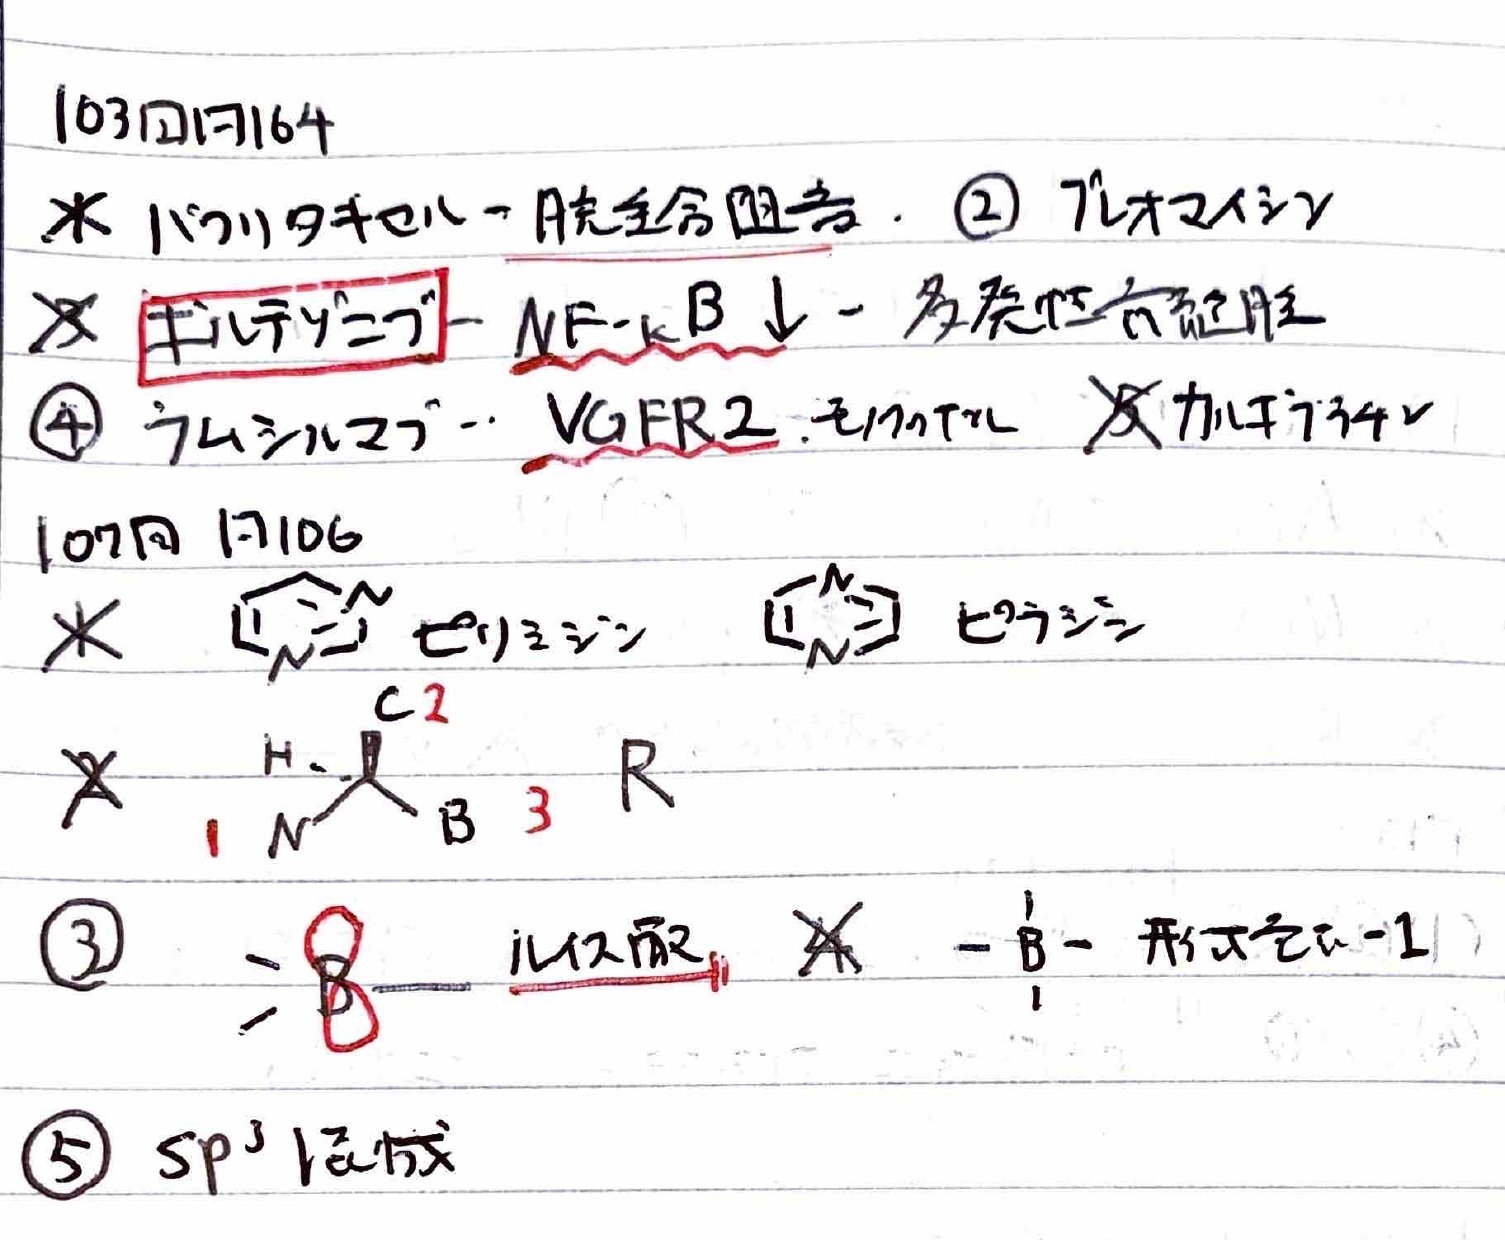 103回問164
✕ パクリタキセル - 脱重合阻害. ② ブレオマイシン
✕ ボルテゾニブ - NF-κB ↓ - 多発性骨髄腫
④ ラムシルマブ … VGFR2.モノクロナル ✕ カルボプラチン
107回 問106
✕ N N ピリミジン N N ピラジン
C 2
✕ H R
1 N B 3
③ B ルイス酸 ✕ -B- 形式電荷 -1
⑤ sp³ 混成